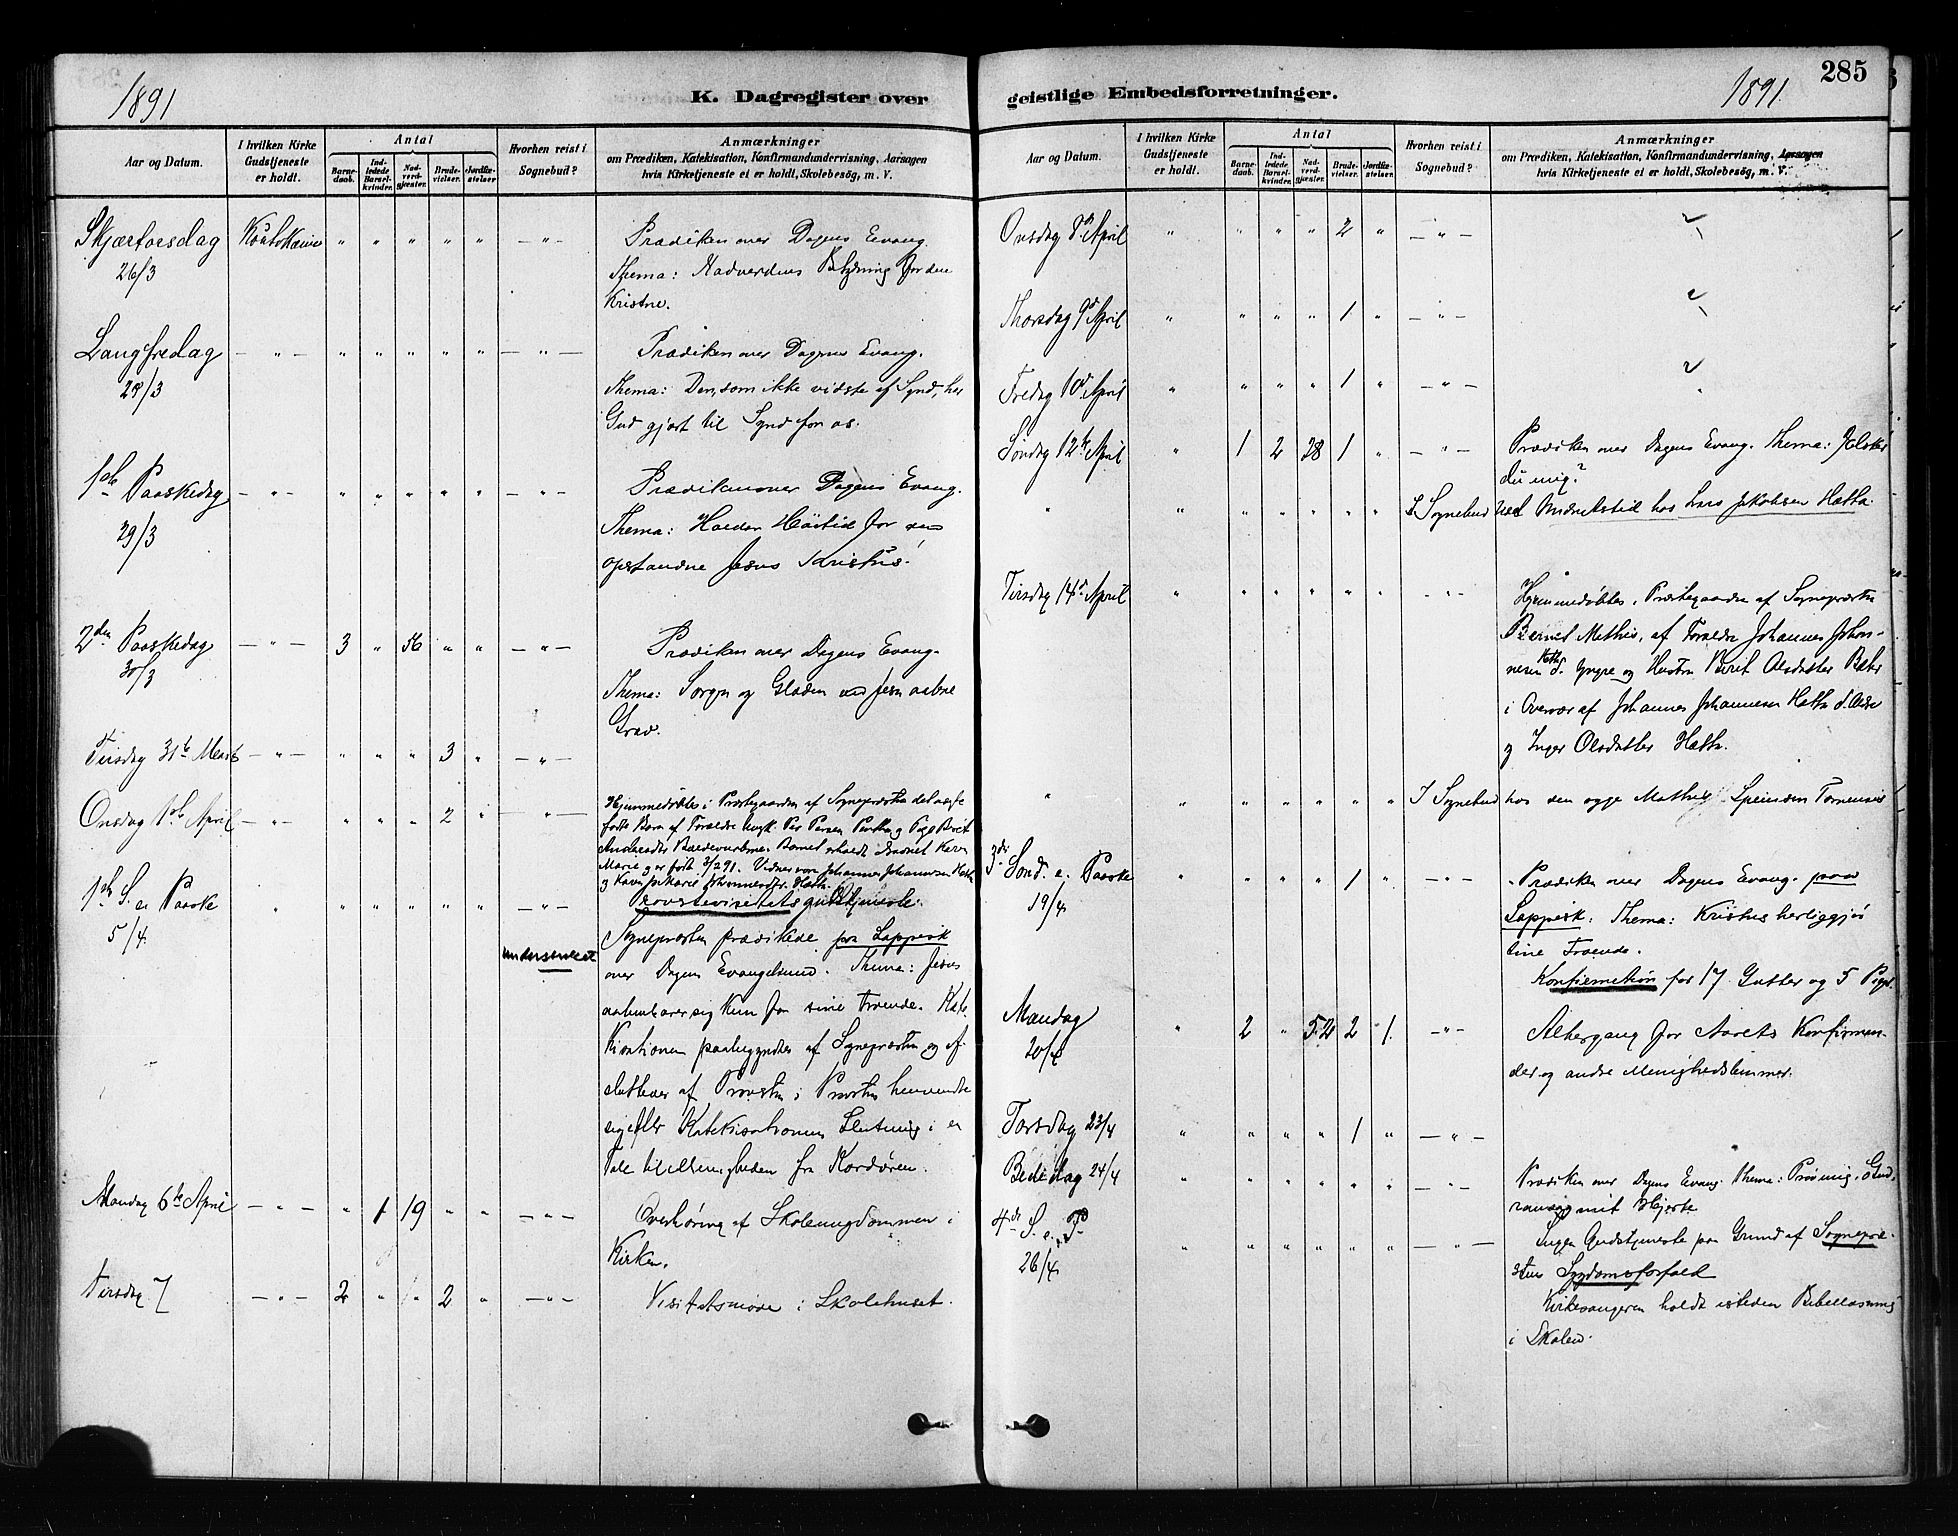 1891
K. Dagregister over
Aar og Datum.
I hvilken Kirke Gudstjeneste er holdt.
Antal
Barnedaab.
Indledede Barselkvinder.
Nadverdgjæster.
Brudevielser.
Jordfæstelser
Hvorhen reist i Sognebud?
Anmærkninger
om Prædiken, Katekisation, Konfirmandundervisning, Aarsagen
hvis Kirketjeneste ei er holdt, Skolebesög, m. V.
Skjærtorsdag Koutokeino " " " " " — " — Prædiken over Dagens Evang.
26/3 Thema: Nadverdens Betydning for den
Kristne.
Langfredag — " — " " " " " — " — Prædiken over Dagens Evang.
Thema: Den, som ikke vidste af Synd, har
Gud gjort til Synd for os.
1ste Paaskedag — " — " " " " " — " — Prædiken over Dagens Evang.
29/3 Thema: Holder Høitid for den
opstandne Jesus Kristus!
2den Paaskedag — " — 3 " 56 " " — " — Prædiken over Dagens Evang.
30/3 Thema: Sorgen og Glæden ved Jesu aabne
Grav.
Tirsdag 31te Marts — " — " " " 3 " — " —
Onsdag 1ste April — " — " " " 2 " — " — Hjemmedøbtes i Præstegaarden af Sognepræsten det uægte
fødte Barn af Forældre Per Persen og Pige Berit
Barnet erholdt Navnet Karen
Marie og er født 3/2 91. Vidner var Johannes Johannesen Hætta
og Karen Johannesdtr. Hætta.
1ste S. e. Paaske " " " " " " — " — Provstevisitatsgudstjeneste.
5/4. Sognepræsten prædikede paa Lappisk
over Dagens Evangelium. Thema: Jesus
aabenbarer sig kun for sine troende. Kate-
kisationen paabegyndtes af Sognepræsten og af-
sluttedes af Provsten; Provsten henvendte
sig efter Katekisationens Slutning i en
Tale til Menigheden fra Kordøren.
Mandag 6te April — " — " 1 19 " " — " — Overhøring af Skoleungdommen i
Kirken.
Tirsdag 7 — " — 2 " " 2 " — " — Visitatsmøde i Skolehuset.
285
1891.
geistlige Embedsforretninger.
Aar og Datum.
I hvilken Kirke Gudstjeneste er holdt.
Antal
Barnedaab.
Indledede Barselkvinder.
Nadverdgjæster.
Brudevielser.
Jordfæstelser
Hvorhen reist i Sognebud?
Anmærkninger
om Prædiken, Katekisation, Konfirmandundervisning, Aarsagen
hvis Kirketjeneste ei er holdt, Skolebesög, m. V.
Onsdag 8de April " " " " 2 " — " —
Thorsdag 9de April " " " " 1 " — " —
Fredag 10de April " " " " 1 " — " —
Søndag 12te April " 1 2 28 1 " — " — Prædiken over Dagens Evang. Thema: Elsker
du mig?
" " " " " " " I Sognebud ved hos Lars Jakobsen Hætta.
Tirsdag 14de April " " " " " " — " — Hjemmedøbtes i Præstegaarden af Sognepræsten
Barnet Mathis, af Forældre Johannes Johan-
nesen Hætta d. Yngre og Hustru Berit Olsdatter Bæhr
i Overvær af Johannes Johannesen Hætta d. Ældre
og Inger Olsdatter Hætta.
" " " " " " " I Sognebud hos den syge Mathis Torneusis
3die Sønd. e. Paaske " " " " 1 " — " — Prædiken over Dagens Evang. paa
19/4 Lappisk. Thema: Kristus herliggjør
sine Troende.
Konfirmation for 17 Gutter og 5 Piger.
Mandag " 2 " 52 2 1. — " — Altergang for Aarets Konfirman-
20/4 der og andre Menighedslemmer.
Torsdag 23/4 " " " " 1 " — " —
Bededag 24/4 " " " " " " — " — Prædiken over Dagens Evang. Thema: Prøv mig, Gud,
ransag mit Hjerte
4de S. e. P " " " " " " — " — Ingen Gudstjeneste paa Grund af Sognepræ-
26/4 stens Sygdomsforfald
Kirkesangeren holdt isteden Bibellæsning
i Skolen.